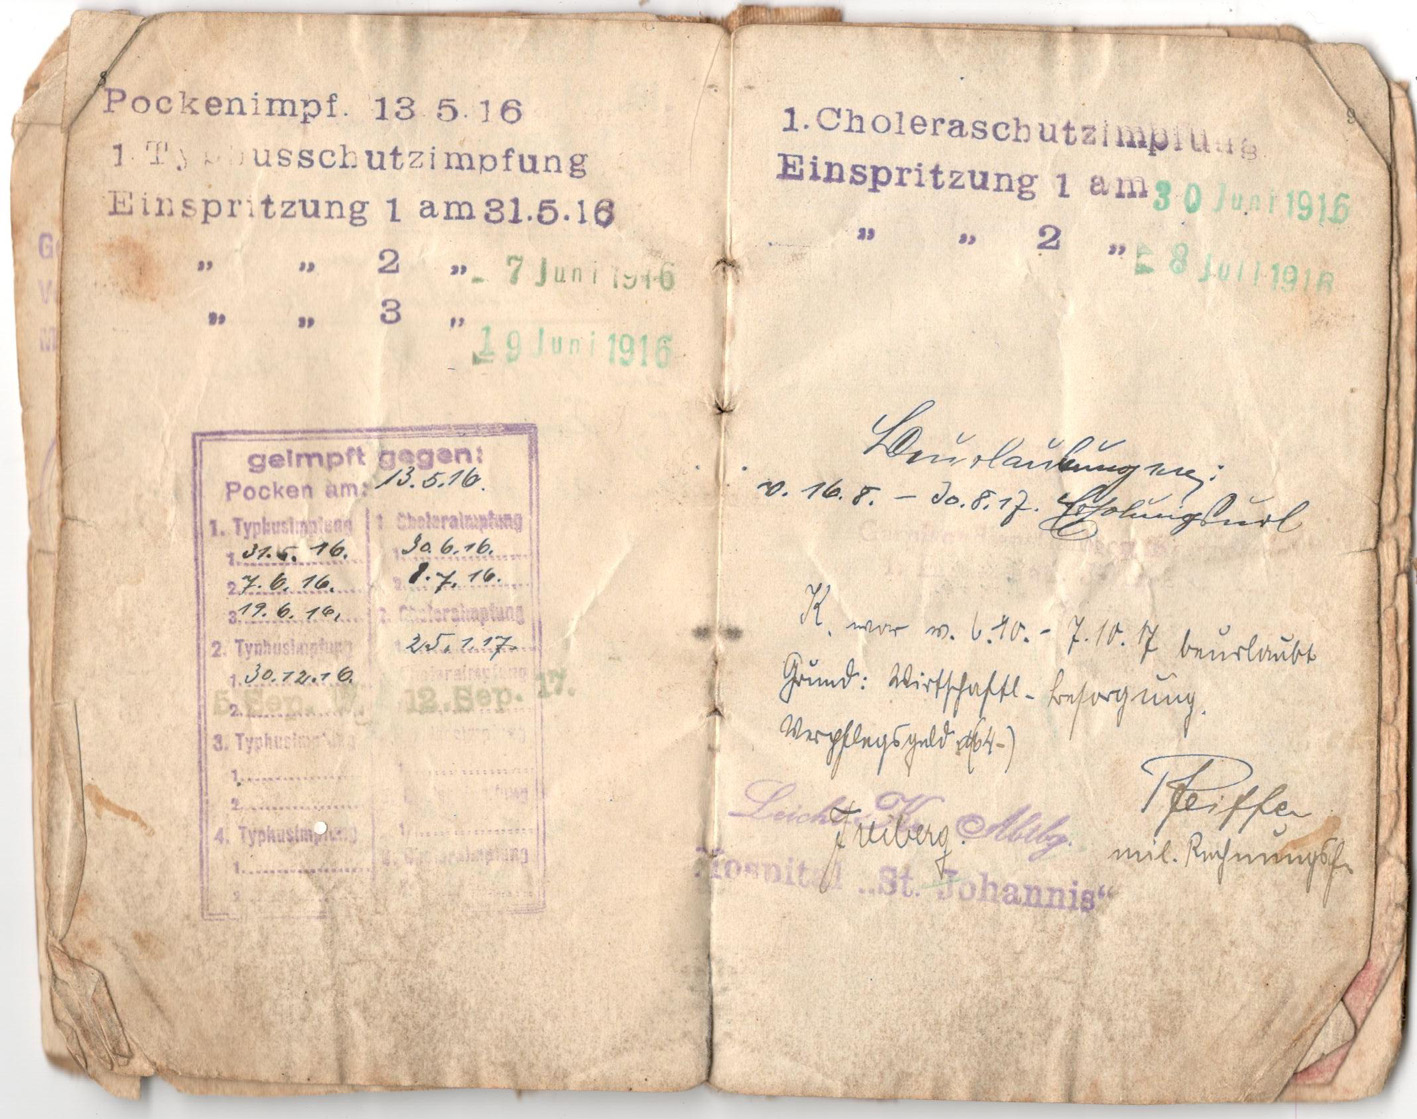 8
Pockenimpf. 13.5.16
1. Typhusschutzimpfung
Einspritzung 1 am 31.5.16
„ „ 2 „ - 7 Juni 1916
„ „ 3 „ 19 Juni 1916
geimpft gegen:
Pocken am: 13.5.16.
1. Typhusimpfung
1. 31.5.16.
2. 7.6.16.
3. 19.6.16.
2. Typhusimpfung
1. 30.12.16.
2. 5. Sep. 17.
3. Typhusimpfung
1.
2.
4. Typhusimpfung
1.
2.
1. Choleraimpfung
30.6.16.
2. 8.7.16.
2. Choleraimpfung
1. 25.1.17.
Choleraimpfung
12. Sep. 17.
1.
Choleraimpfung
9
1. Choleraschutzimpfung
Einspritzung 1 am 30 Juni 1916
„ „ 2 „ - 8 Juli 1916
Beurlaubungen:
v. 16.8. – 30.8.17. Erholungsurl
K. war v. 6.10. - 7.10.17 beurlaubt
Grund: Wirtschaftl. Besorgung.
Verpflegsgeld
Pfeiffer
mil. Rechnungsf.
Leicht. Kr. Abtlg.
Freiberg.
Hospital „St. Johannis“